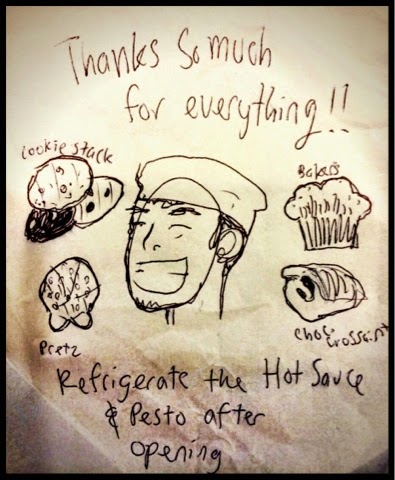 Thanks So much
for everything!!
Cookie stack
Bakers
Pretz
Choc
Crossant
Refrigerate the Hot Sauce
& Pesto after
opening